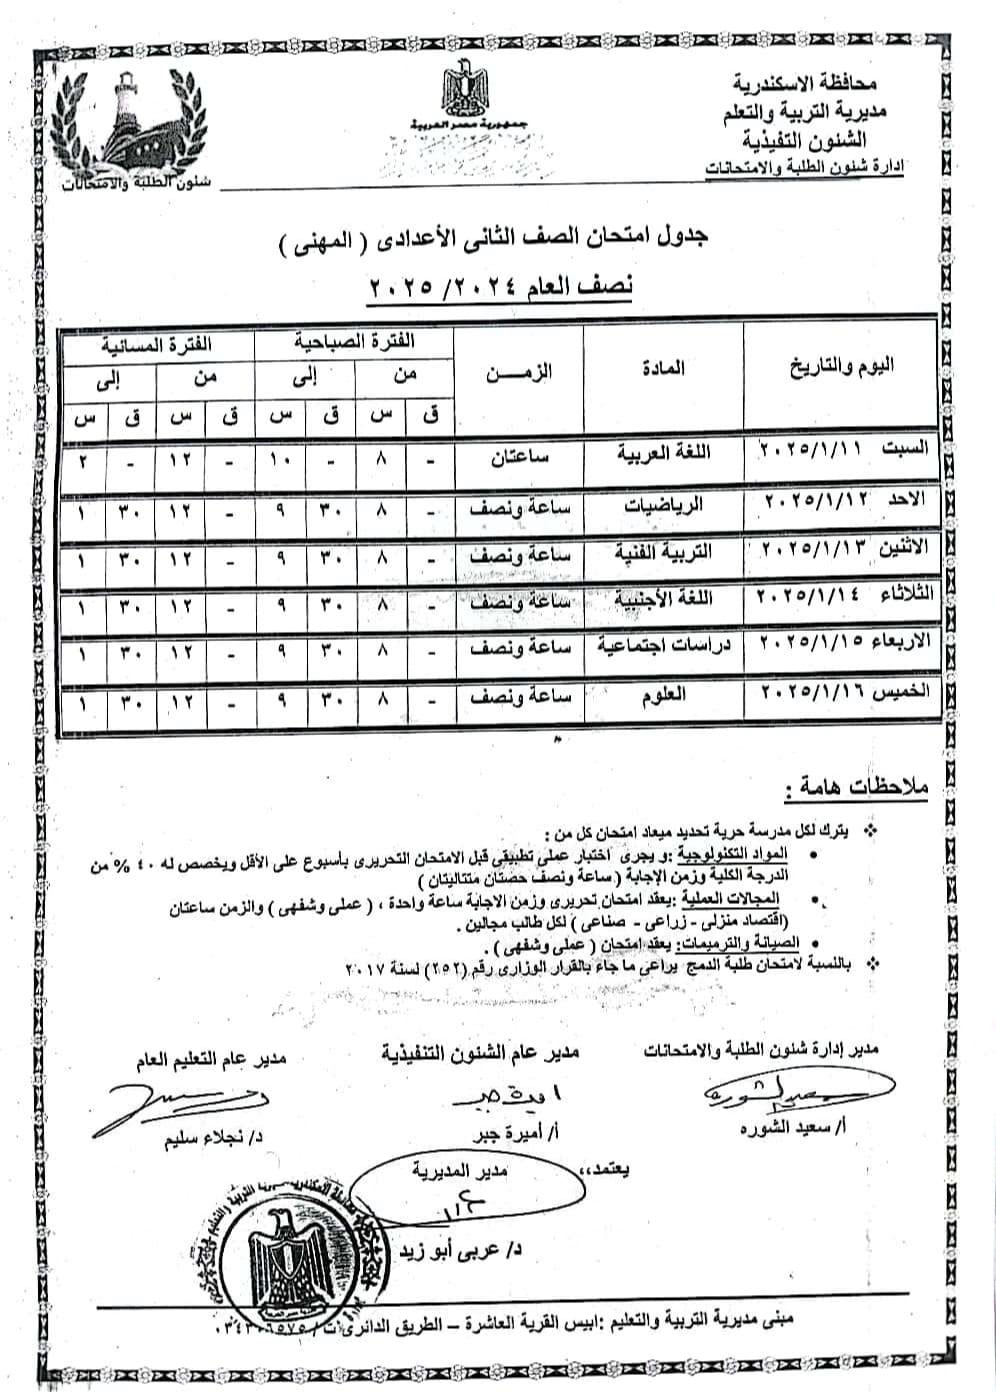 محافظة الاسكندرية
مديرية التربية والتعلم
الشئون التفيذية
ادارة شئون الطلبة والامتحانات
جمهورية مصر العربية
شئون الطلبة والامتحانات
جدول امتحان الصف الثانى الأعدادى ( المهنى )
نصف العام ٢٠٢٤ /٢٠٢٥
اليوم والتاريخ المادة الزمـــن الفترة الصباحية الفترة المسائية
من إلى من إلى
ق س ق س ق س ق س
السبت ٢٠٢٥/١/١١ اللغة العربية ساعتان - ٨ - ١٠ - ١٢ - ٢
الاحد ٢٠٢٥/١/١٢ الرياضيات ساعة ونصف - ٨ ٣٠ ٩ - ١٢ ٣٠ ١
الاثنين ٢٠٢٥/١/١٣ التربية الفنية ساعة ونصف - ٨ ٣٠ ٩ - ١٢ ٣٠ ١
الثلاثاء ٢٠٢٥/١/١٤ اللغة الأجنبية ساعة ونصف - ٨ ٣٠ ٩ - ١٢ ٣٠ ١
الاربعاء ٢٠٢٥/١/١٥ دراسات اجتماعية ساعة ونصف - ٨ ٣٠ ٩ - ١٢ ٣٠ ١
الخميس ٢٠٢٥/١/١٦ العلوم ساعة ونصف - ٨ ٣٠ ٩ - ١٢ ٣٠ ١
ملاحظات هامة :
يترك لكل مدرسة حرية تحديد ميعاد امتحان كل من :
المواد التكنولوجية :و يجرى اختبار عملى تطبيقى قبل الامتحان التحريرى بأسبوع على الأقل ويخصص له ٤٠ % من
الدرجة الكلية وزمن الإجابة ( ساعة ونصف حصتان متتاليتان )
المجالات العملية :يعقد امتحان تحريرى وزمن الاجابة ساعة واحدة ، ( عملى وشفهى ) والزمن ساعتان
(اقتصاد منزلى - زراعى - صناعى ) لكل طالب مجالين .
الصيانة والترميمات: يعقد امتحان ( عملى وشفهى ) .
بالنسبة لامتحان طلبة الدمج يراعى ما جاء بالقرار الوزارى رقم (٢٥٢) لسنة ٢٠١٧
مدير إدارة شئون الطلبة والامتحانات
مدير عام الشئون التنفيذية
مدير عام التعليم العام
أ/ سعيد الشوره
أ/ أميرة جبر
د/ نجلاء سليم
يعتمد،،
مدير المديرية
د/ عربى أبو زيد
مبنى مديرية التربية والتعليم :ابيس القرية العاشرة – الطريق الدائرى